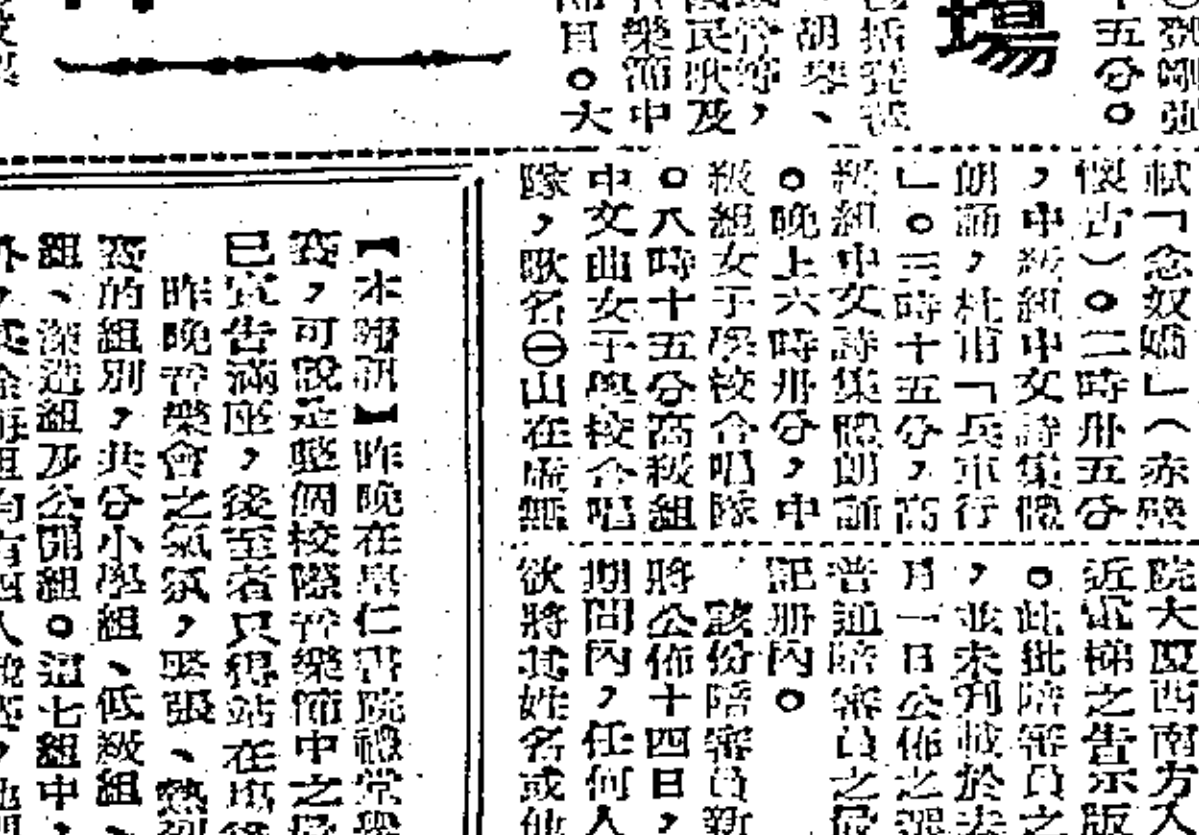 場
五分。
胡琴、
民歌及
樂節中
節目。大
軾「念奴嬌」(赤壁
懷古)。二時卅五分
,中級組中文詩集體
朗誦,杜甫「兵車行
」。三時十五分,高
級組中文詩集體朗誦
。晚上六時卅分,中
級組女子學校合唱隊
。八時十五分高級組
中文曲女子學校合唱
隊,歌名㊀山在虛無
院大廈西南方入
近電梯之告示版
。此批陪審員之
,並未刊載於去
月一日公佈之
普通陪審員之
記册內。
該份陪審員新
將公佈十四日,
期間內,任何人
欲將其姓名或他
【本報訊】昨晚在 仁書院禮堂舉
賽,可說是整個校際音樂節中之
已宣告滿座,後至者只得站在
昨晚音樂會之氣氛,緊張、熱烈
賽的組別,共分小學組、低級組、
組、深造組及公開組。這七組中,
外,其餘每組均有四人